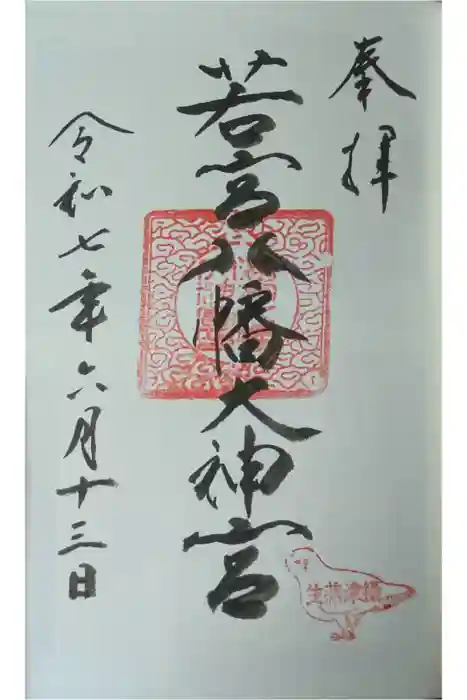 奉拝
若宮八幡大神宮
令和七年六月十三日
摂津蒲生